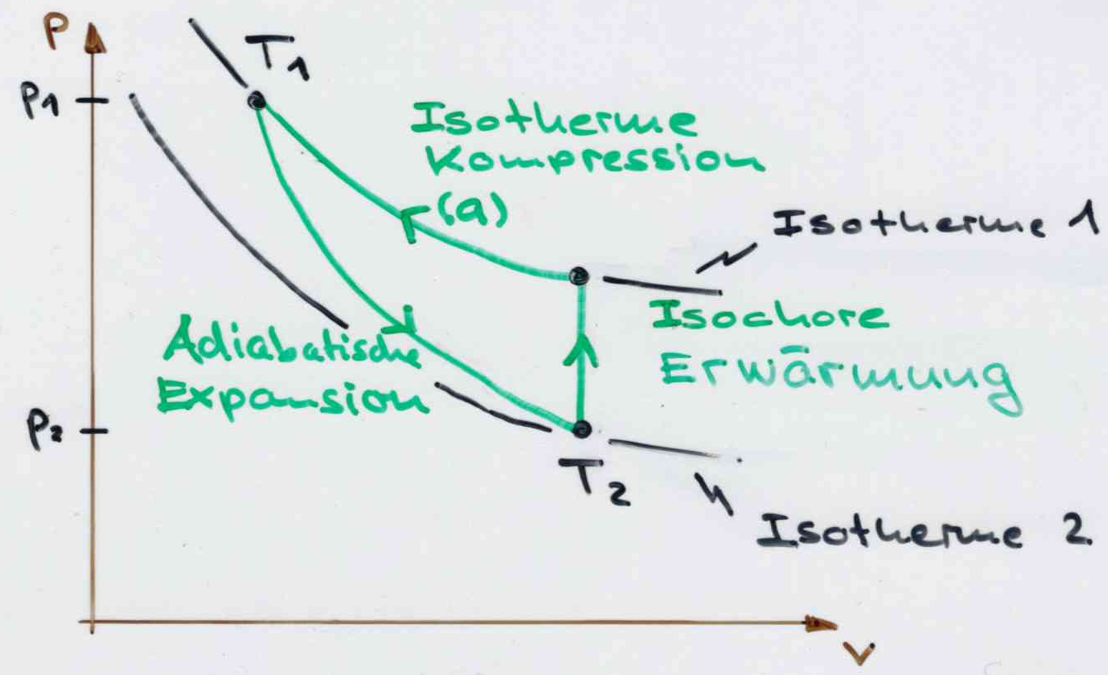 P
T1
P1
Isotherme
Kompression
(a)
Isotherme 1
Isochore
Erwärmung
Adiabatische
Expansion
P2
T2
Isotherme 2
V